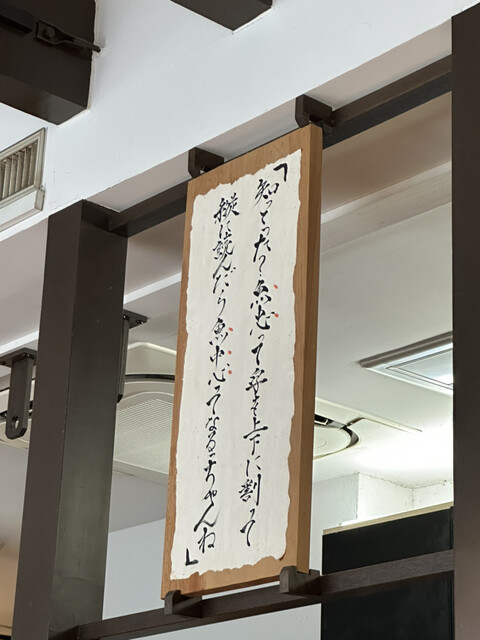 「知っとった〜魚忠って字を上下に割って
縦に読んだら魚中心ってなるっちゃんね」